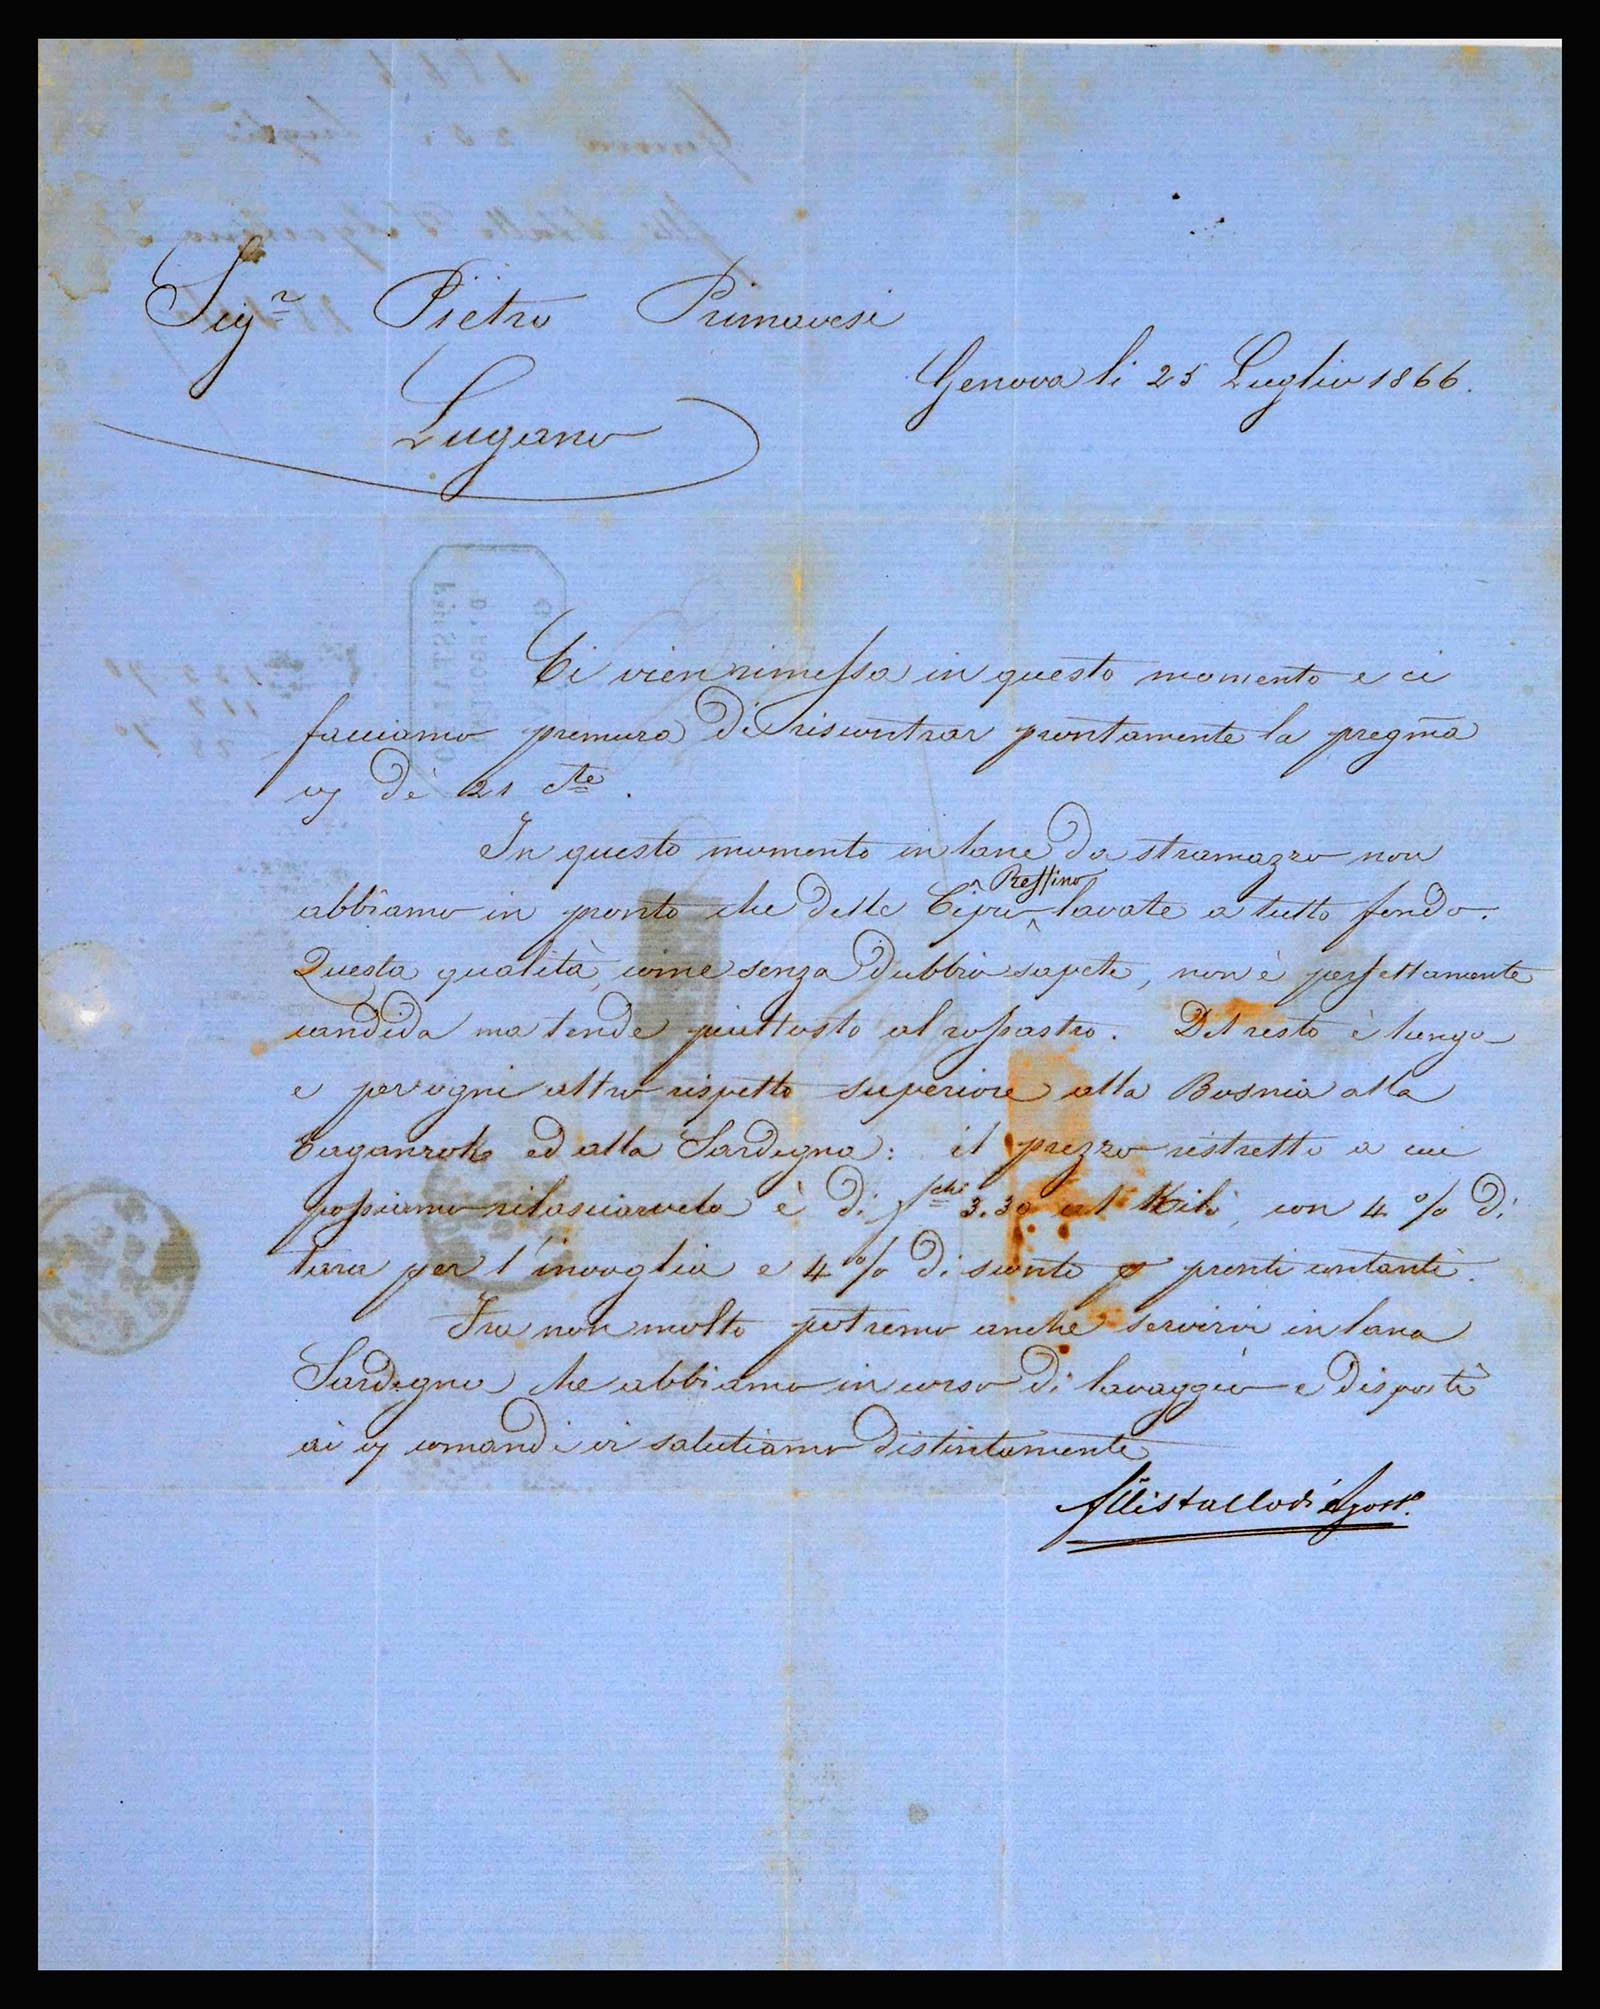 Sigr Pietro Primavesi
Genova li 25 Luglio 1866.
Lugano
Ci vien rimessa in questo momento e ci
facciamo premura di riscontrar prontamente la pregma
di 21 cte.
In questo momento in lane da stramazzo non
Reffino
abbiamo in pronto che delle Cipro lavate a tutto fondo.
Questa qualità, come senza dubbio sapete, non è perfettamente
candida ma tende piuttosto al rossastro. Del resto è lunga
e per ogni altro rispetto superiore alla Bosnia alla
Taganrok ed alla Sardegna: il prezzo ristretto a cui
possiamo rilasciarvela è di fchi 3.30 al Kilò, con 4 % di
tara per l'invoglia e 4 % di sconto p pronti contanti.
Fra non molto potremo anche servirvi in lana
Sardegna che abbiamo in corso di lavaggio e disposti
ai comandi vi salutiamo distintamente